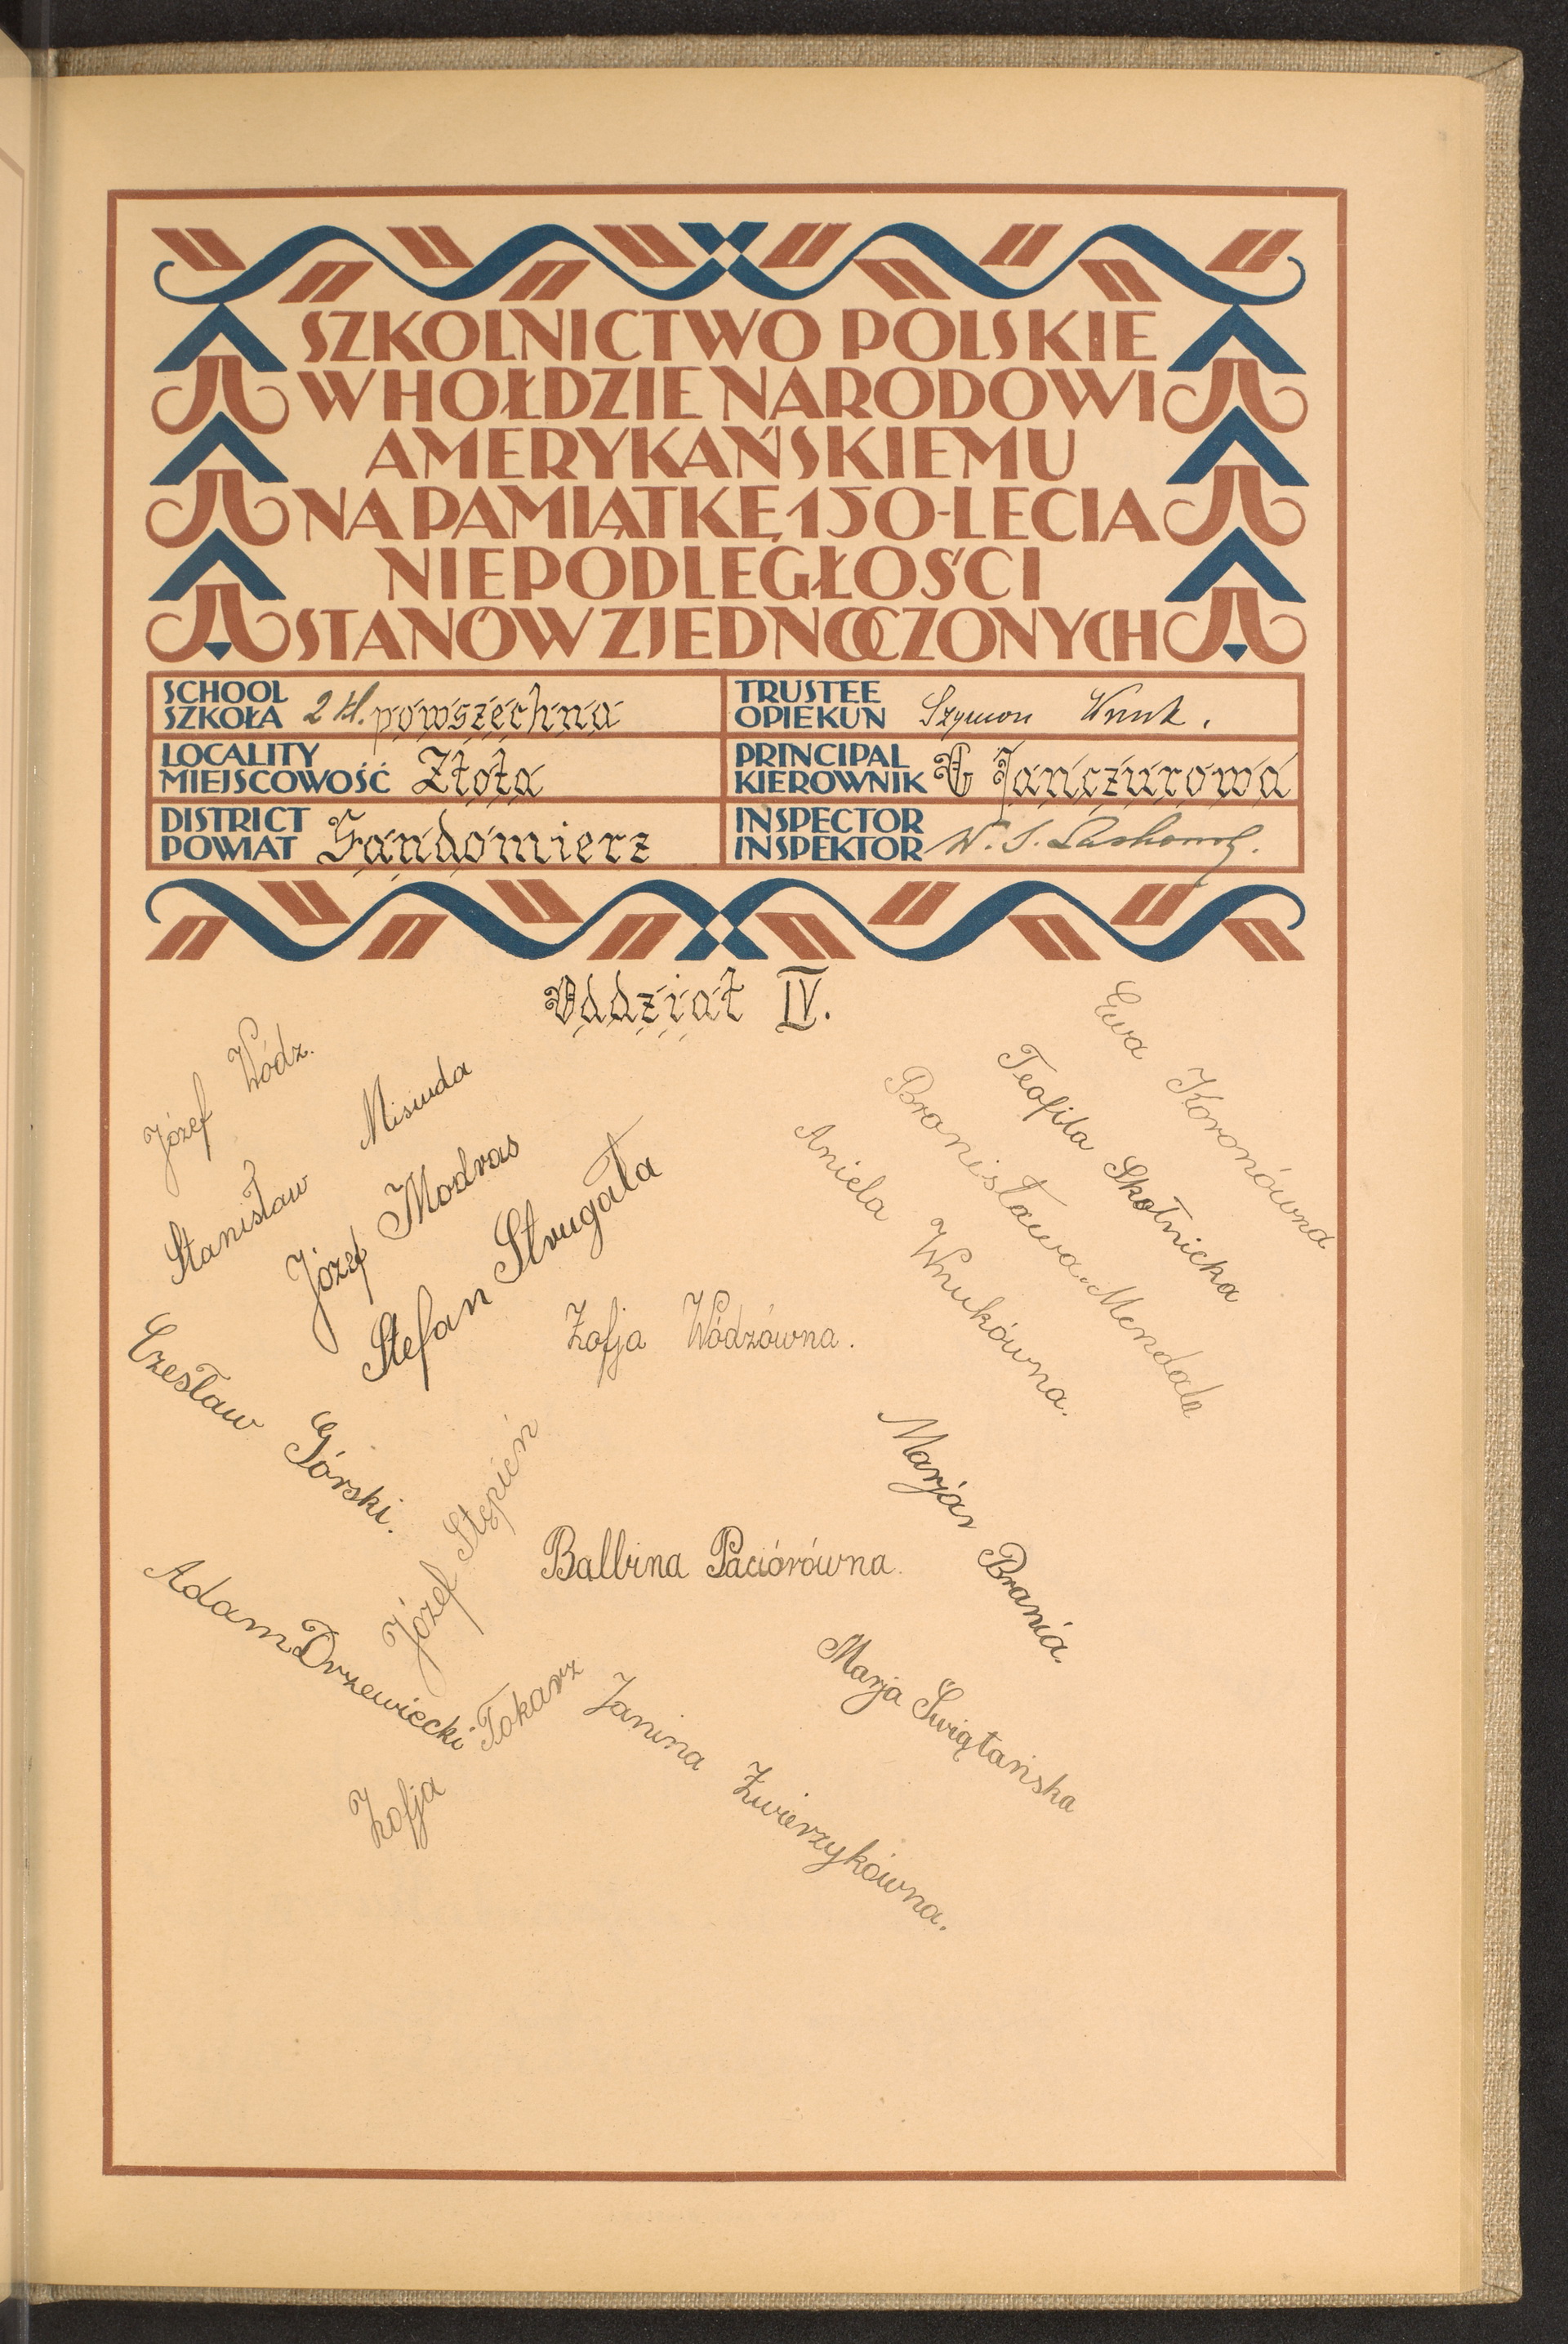 SZKOLNICTWO POLSKIE
W HOŁDZIE NARODOWI
AMERYKAŃSKIEMU
NA PAMIĄTKĘ 150-LECIA
NIEPODLEGŁOŚCI
STANÓW ZJEDNOCZONYCH
SCHOOL
SZKOŁA 2 kl. powszechna
TRUSTEE
OPIEKUN Szymon Wnuk.
LOCALITY
MIEJSCOWOŚĆ Złota
PRINCIPAL
KIEROWNIK Jańczurowa
DISTRICT
POWIAT Sandomierz
INSPECTOR
INSPEKTOR W. S.
Oddział IV.
Józef Wódz.
Stanisław Misiuda
Józef Modras
Stefan Strugała
Ewa Koronówna
Teofila Skołnicka
Bronisława Mendala
Aniela Wnukówna.
Zofja Wódzówna.
Czesław Górski.
Józef Stępień
Marjan Brania.
Balbina Paciórówna.
Adam Drzewiecki
Zofja Tokarz
Marja Świątańska
Janina Zwierzykówna.